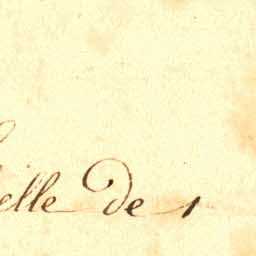 elle de